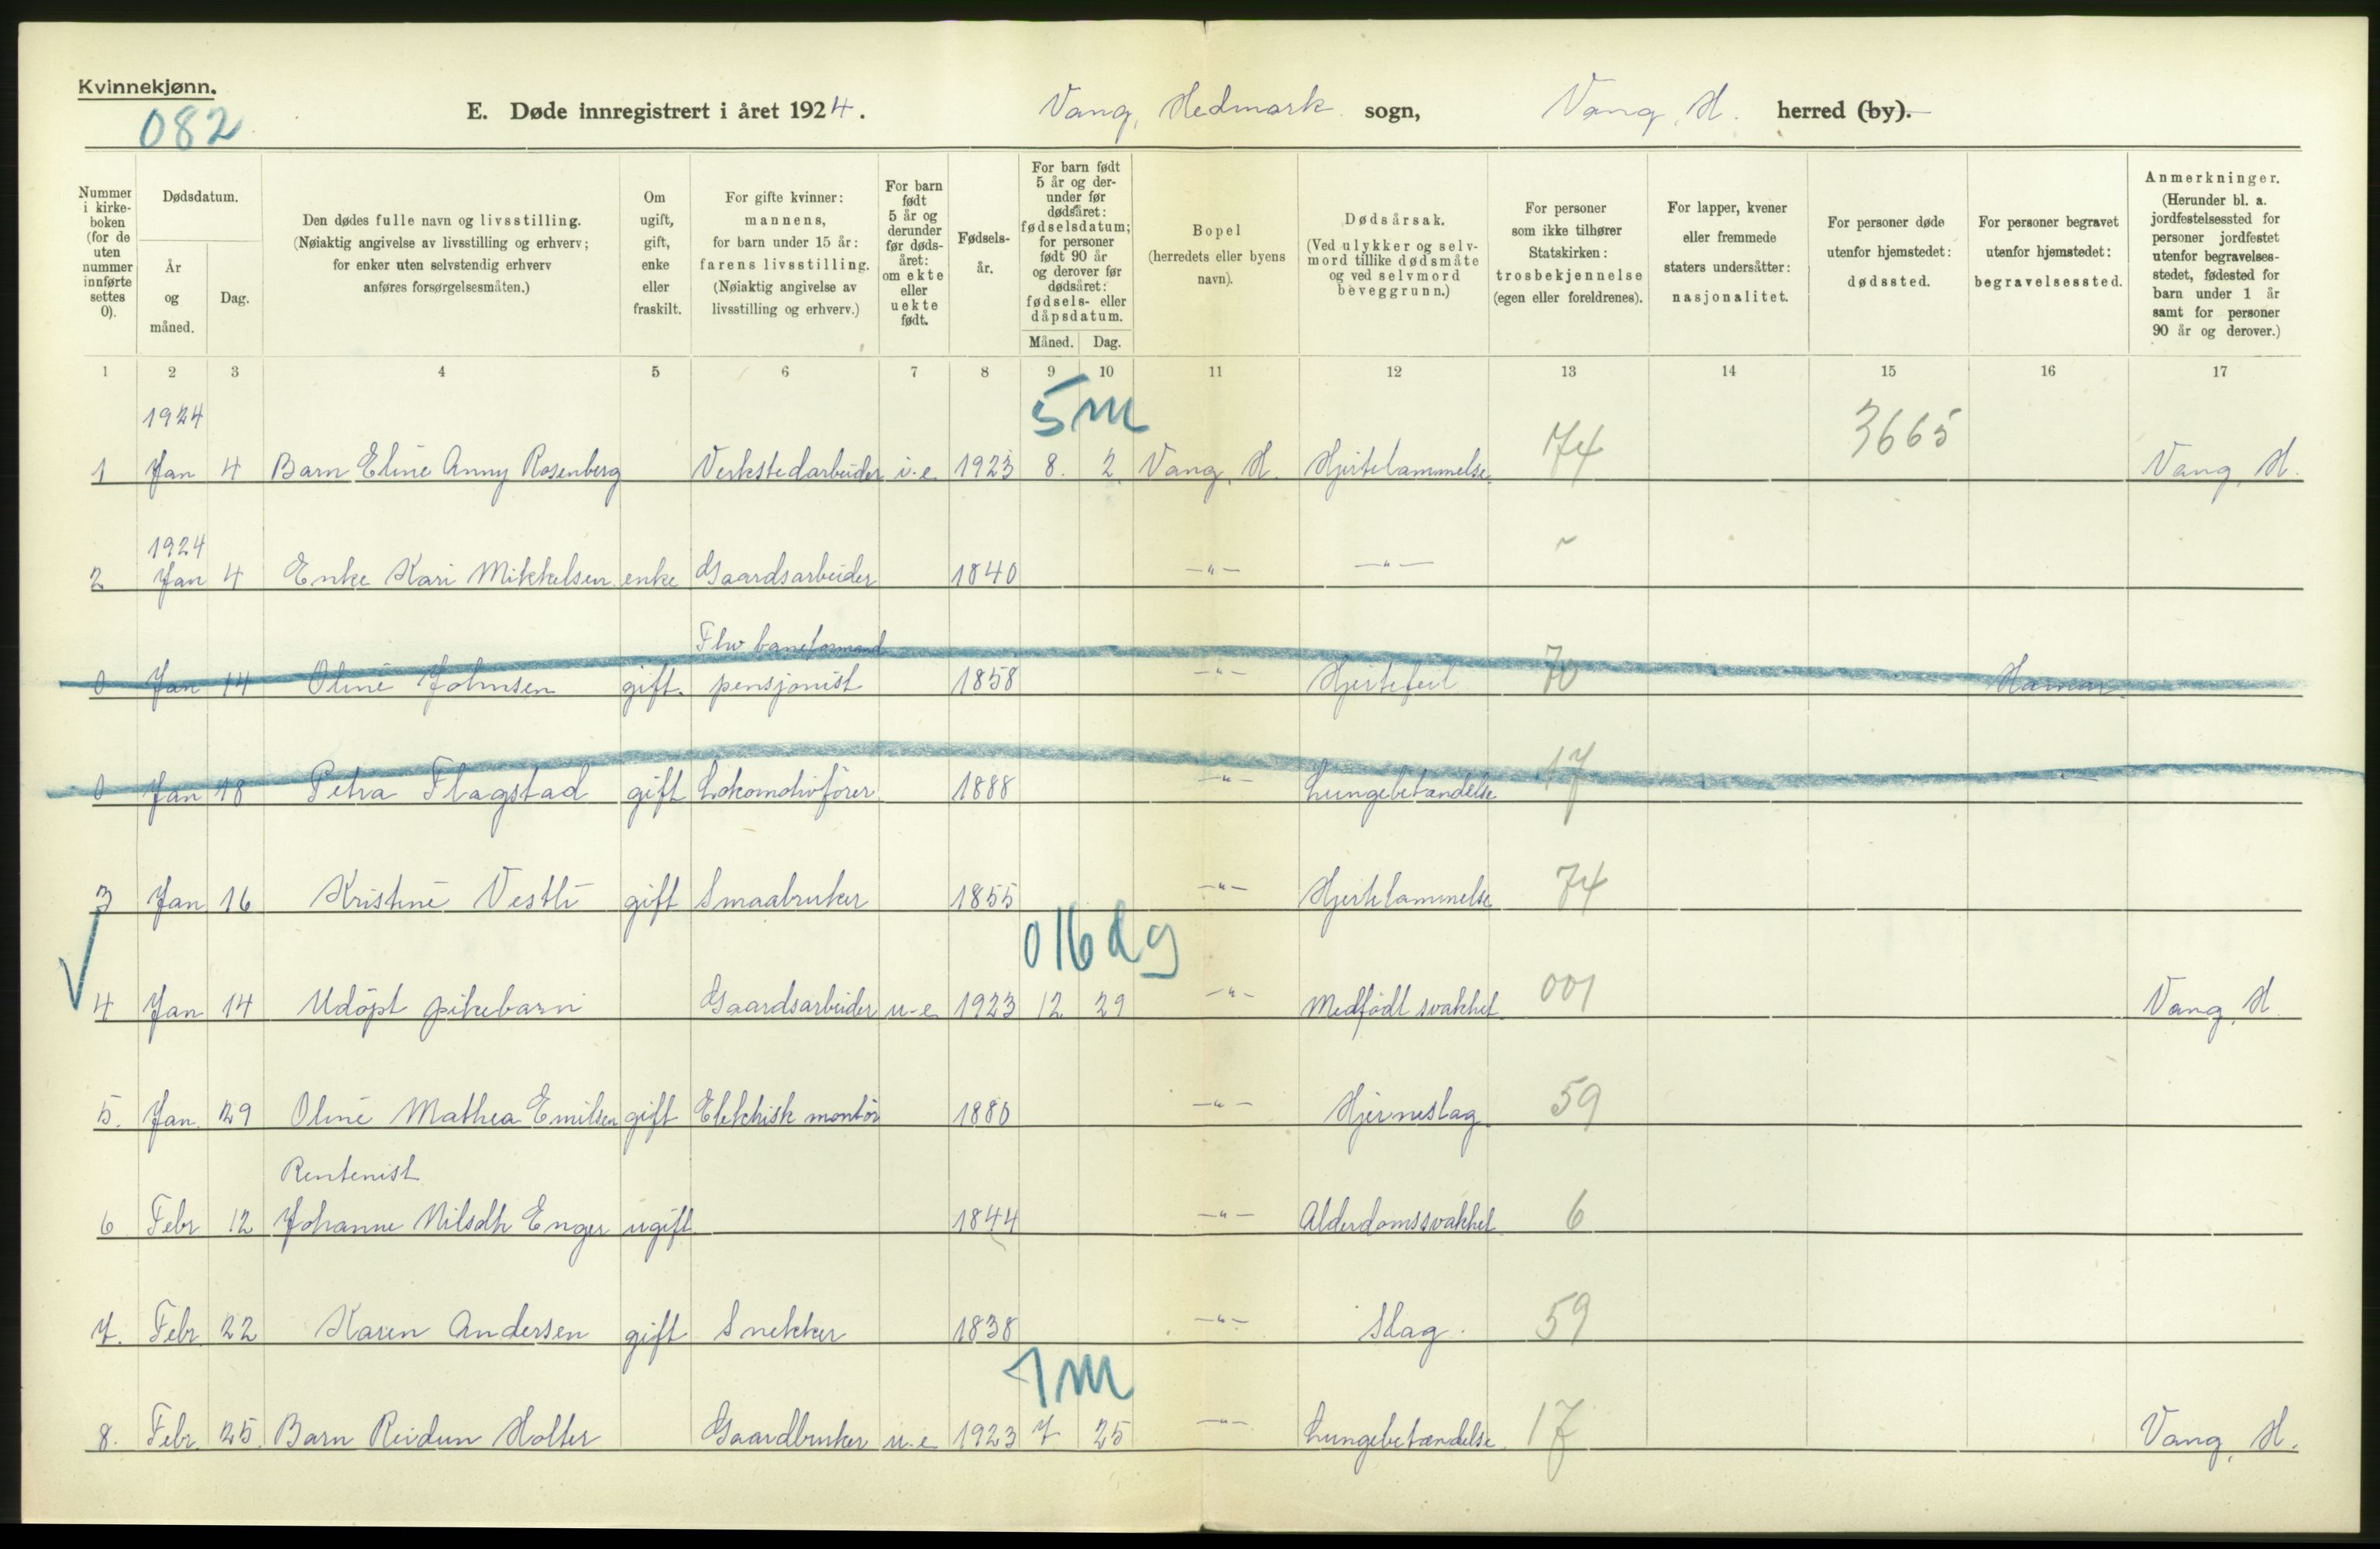 Kvinnekjønn.
082
E. Døde innregistrert i året 1924. Vang, Hedmark sogn, Vang, H. herred (by).
Nummer i kirkeboken (for de uten nummer innførte settes 0).
Dødsdatum.
År og måned.
Dag.
Den dødes fulle navn og livsstilling.
(Nøiaktig angivelse av livsstilling og erhverv; for enker uten selvstendig erhverv anføres forsørgelsesmåten.)
Om ugift, gift, enke eller fraskilt.
For gifte kvinner: mannens, for barn under 15 år: farens livsstilling. (Nøiaktig angivelse av livsstilling og erhverv.)
For barn født 5 år og derunder før dødsåret: om ekte eller uekte født.
Fødselsår.
For barn født 5 år og derunder før dødsåret: fødselsdatum; for personer født 90 år og derover før dødsåret: fødsels- eller dåpsdatum.
Måned. Dag.
Bopel (herredets eller byens navn).
Dødsårsak. (Ved ulykker og selvmord tillike dødsmåte og ved selvmord beveggrunn.)
For personer som ikke tilhører Statskirken: trosbekjennelse (egen eller foreldrenes).
For lapper, kvener eller fremmede staters undersåtter: nasjonalitet.
For personer døde utenfor hjemstedet: dødssted.
For personer begravet utenfor hjemstedet: begravelsessted.
Anmerkninger. (Herunder bl. a. jordfestelsessted for personer jordfestet utenfor begravelsesstedet, fødested for barn under 1 år samt for personer 90 år og derover.)
1 2 3 4 5 6 7 8 9 10 11 12 13 14 15 16 17
1924 5 m 3665
1 Jan 4 Barn Eline Anny Rosenberg Verkstedarbeider i.e. 1923 8. 2. Vang, H. Hjertelammelse. 74 Vang, H.
1924
2 Jan 4 Enke Kari Mikkelsen enke Gaardsarbeider 1840 -"- -"- ~
Fhv. baneformand
0 Jan 14 Oline Johnsen gift. pensjonist 1858 -"- Hjertefeil 70 Hamar
0 Jan 18 Petra Flagstad gift Lokomotivfører 1888 -"- Lungebetændelse 17 -"-
3 Jan 16 Kristine Vestli gift Smaabruker 1855 -"- Hjertelammelse 74
016 dg
4 Jan 14 Udöpt pikebarn Gaardsarbeider u-e 1923 12 29 -"- Medfödt svakhet 001 Vang, H
5. Jan. 29 Oline Mathea Emilsen gift Elektrisk montör 1880 -"- Hjerneslag. 59
Rentenist
6 Febr 12 Johanne Nilsdtr Enger ugift 1844 -"- Alderdomssvakhet 6
7. Febr. 22 Karen Andersen gift Snekker 1838 -"- Slag. 59
7 m
8. Febr. 25. Barn Reidun Holter Gaardbruker u.e. 1923 7 25 -"- Lungebetændelse. 17 Vang, H.